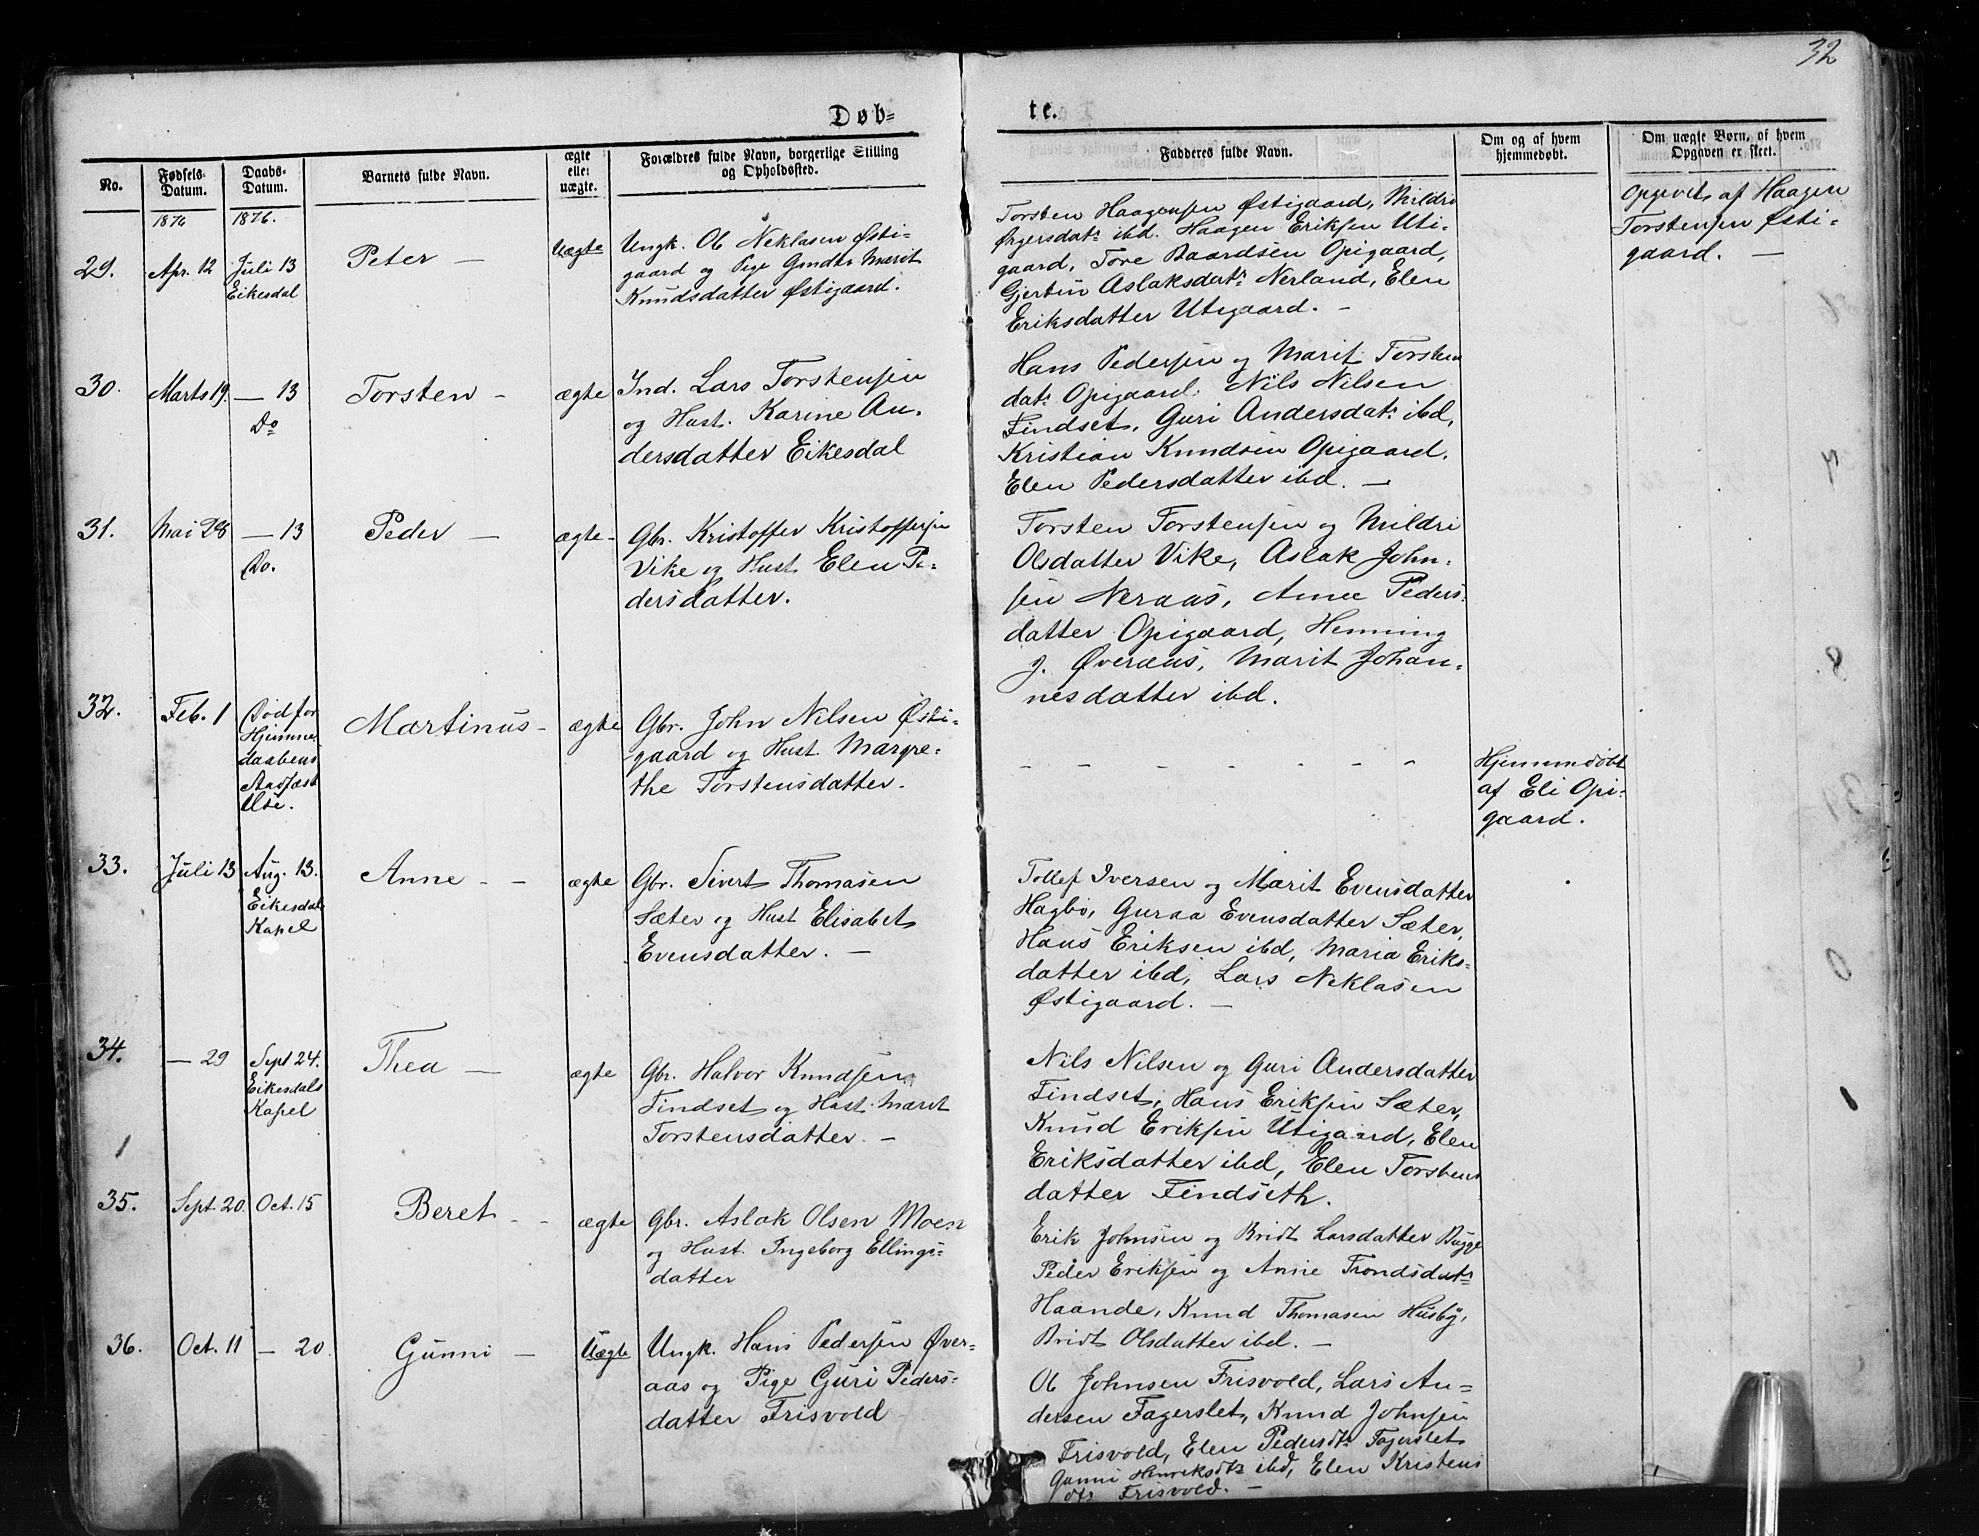 32
Døb=
te.
No.
Fødsels Datum.
Daabs-Datum.
Barnets fulde Navn.
ægte eller uægte.
Forældres fulde Navn, borgerlige Stilling og Opholdssted.
Fadderes fulde Navn.
Om og af hvem hjemmedøbt.
Om uægte Børn, af hvem Opgaven er skeet.
1876
1876.
29.
Apr. 12
Juli 13
Eikesdal
Peter —
Uægte
Ungk. Ob Neklasen Østi=
gaard og Pige Marit
Knudsdatter Østigaard.
Torsten Haagensen Østigaard, Mildri
ibd. Haagen Eriksen Uti=
gaard, Tore Baardsen Opigaard,
Gjertrü Aslaksdatr Nerland, Elen
Eriksdatter Utigaard. —
Opgivet af Haagen
Torstensen Østi=
gaard. —
30.
Marts 19.
— 13
Do
Torsten -
ægte
Ind. Lars Torstensen
og Hust. Karine An=
dersdatter Eikesdal
Hans Pedersen og Marit Torsten
datr Opigaard. Nils Nilsen
Findset, Guri Andersdatr ibd,
Kristian Knudsen Opigaard.
Elen Pedersdatter ibd. —
31.
Mai 28
— 13
Do.
Peder —
ægte -
Gbr. Kristoffer Kristoffersen
Vike og Hust Elen Pe=
dersdatter.
Torsten Torstensen og Mildri
Olsdatter Vike, Aslak John=
sen Neraas, Anne Peders=
datter Opigaard, Henning
J. Øveraas, Marit Johan=
nesdatter ibd.
32.
Feb. 1
Død før
Hjemme
daabens
Stadfæst
else.
Martinus -
ægte
Gbr. John Nilsen Østi=
gaard og Hust. Margre=
the Torstensdatter.
- - - - - - -
Hjemmedøbt
af Eli Opi=
gaard.
33.
Juli 13
Aug. 13.
Eikesdals
Kapel
Anne - -
ægte
Gbr. Sivert Thomasen
Sæter og Hust Elisabet
Evensdatter. —
Tollef Iversen og Marit Evensdatter
Hagbø, Guraa Evensdatter Sæter,
Hans Eriksen ibd, Maria Eriks=
datter ibd, Lars Neklasen
Østigaard. —
34.
— 29
Sept 24.
Eikesdals
Kapel
Thea —
ægte
Gbr. Halvor Knudsen
Findset og Hust. Marit
Torstensdatter. —
Nils Nilsen og Guri Andersdatter
Findset, Hans Eriksen Sæter,
Knud Eriksen Utigaard, Elen
Eriksdatter ibd, Elen Torstens
datter Findseth.
35.
Sept. 20.
Oct. 15
Beret - -
ægte
Gbr. Aslak Olsen Moen
og Hust. Ingeborg Ellings=
datter
Erik Johnsen og Bridt Larsdatter Bugge
Peder Eriksen og Anne Trondsdatr
Haande, Knud Thomasen Husby,
Bridt Olsdatter ibd. —
36.
Oct. 11
— 20.
Gunni —
Uægte
Ungk. Hans Pedersen Øver=
aas og Pige Guri Peders=
datter Frisvold
Ob Johnsen Frisvold, Lars An=
dersen Fagerslet, Knud Johnsen
Frisvold, Elen Pedersdtr Fagerslet
Gunni Henriksdtr ibd, Elen Kristens
dtr Frisvold. —